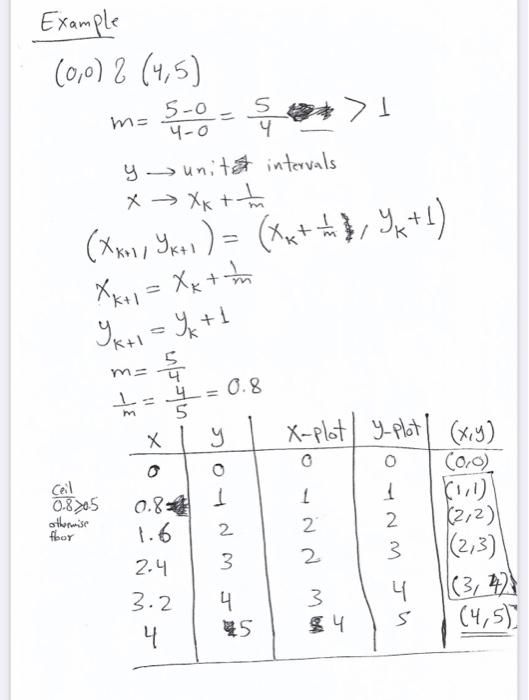 Example
(0,0) & (4,5)
m = 5-0/4-0 = 5/4 > 1
y → unit intervals
x → xₖ + 1/m
(xₖ₊₁, yₖ₊₁) = (xₖ + 1/m, yₖ + 1)
xₖ₊₁ = xₖ + 1/m
yₖ₊₁ = yₖ + 1
m = 5/4
1/m = 4/5 = 0.8
x y x-plot y-plot (x,y)
0 0 0 0 (0,0)
Ceil
0.8 ≥ 0.5
otherwise
floor
0.8 1 1 1 (1,1)
1.6 2 2 2 (2,2)
2.4 3 2 3 (2,3)
3.2 4 3 4 (3,4)
4 5 4 5 (4,5)